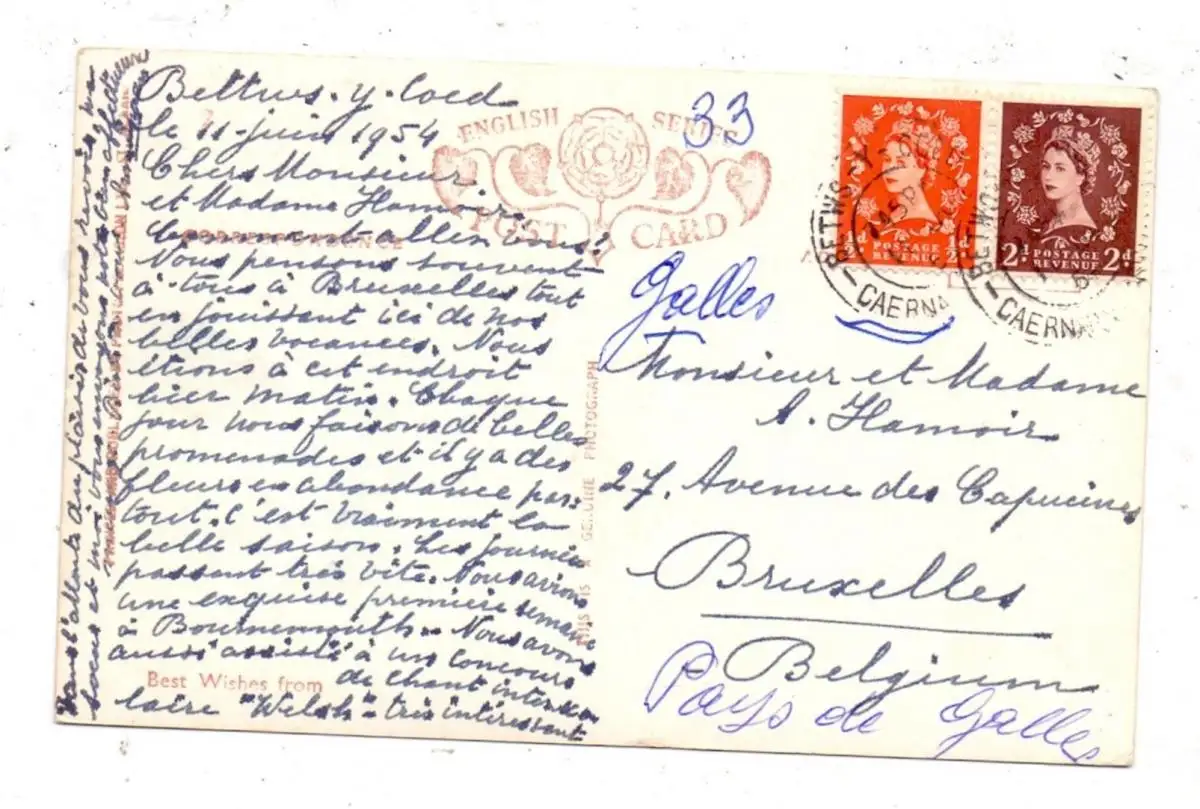 Bettws-y-Coed
le 11-juin 1954
Chers Monsieur
et Madame Hamoir,
Comment allez vous?
Nous pensons souvent
à-tous à Bruxelles tout
en jouissant ici de nos
belles vacances. Nous
étions à cet endroit
hier matin. Chaque
jour nous faisons de belles
promenades et il y a des
fleurs en abondance par-
tout. C'est vraiment la
belle saison. Les journées
passent très vite. Nous avions
une exquise première semaine
à Bournemouth. Nous avons
aussi assisté à un concours
de chant
laire "Welsh" très intéressant
Dans l'attente du plaisir de vous revoir, ma
soeur et moi vous envoyons
CORRESPONDENCE
Best Wishes from
THIS IS A GENUINE PHOTOGRAPH
ENGLISH SERIES
POST CARD
33
½d POSTAGE REVENUE ½d
2d POSTAGE REVENUE 2d
BETWS-Y-
CAERNA
BETWS-Y-
CAERNA
Galles
Monsieur et Madame
A. Hamoir
27, Avenue des Capucines
Bruxelles
Belgium
Pays de Galles